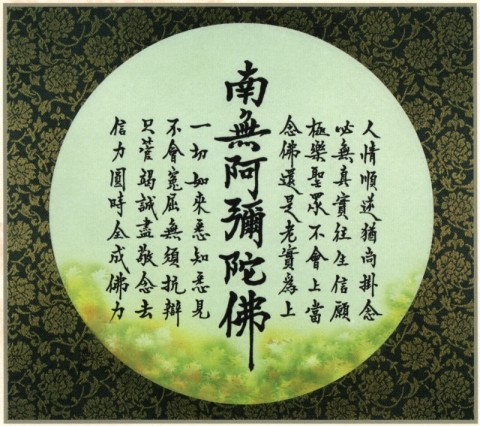 人情順逆猶尚掛念
必無真實往生信願
極樂聖眾不會上當
念佛還是老實為上
南無阿彌陀佛
一切如來悉知悉見
不會冤屈無須抗辯
只管竭誠盡敬念去
信力圓時全成佛力